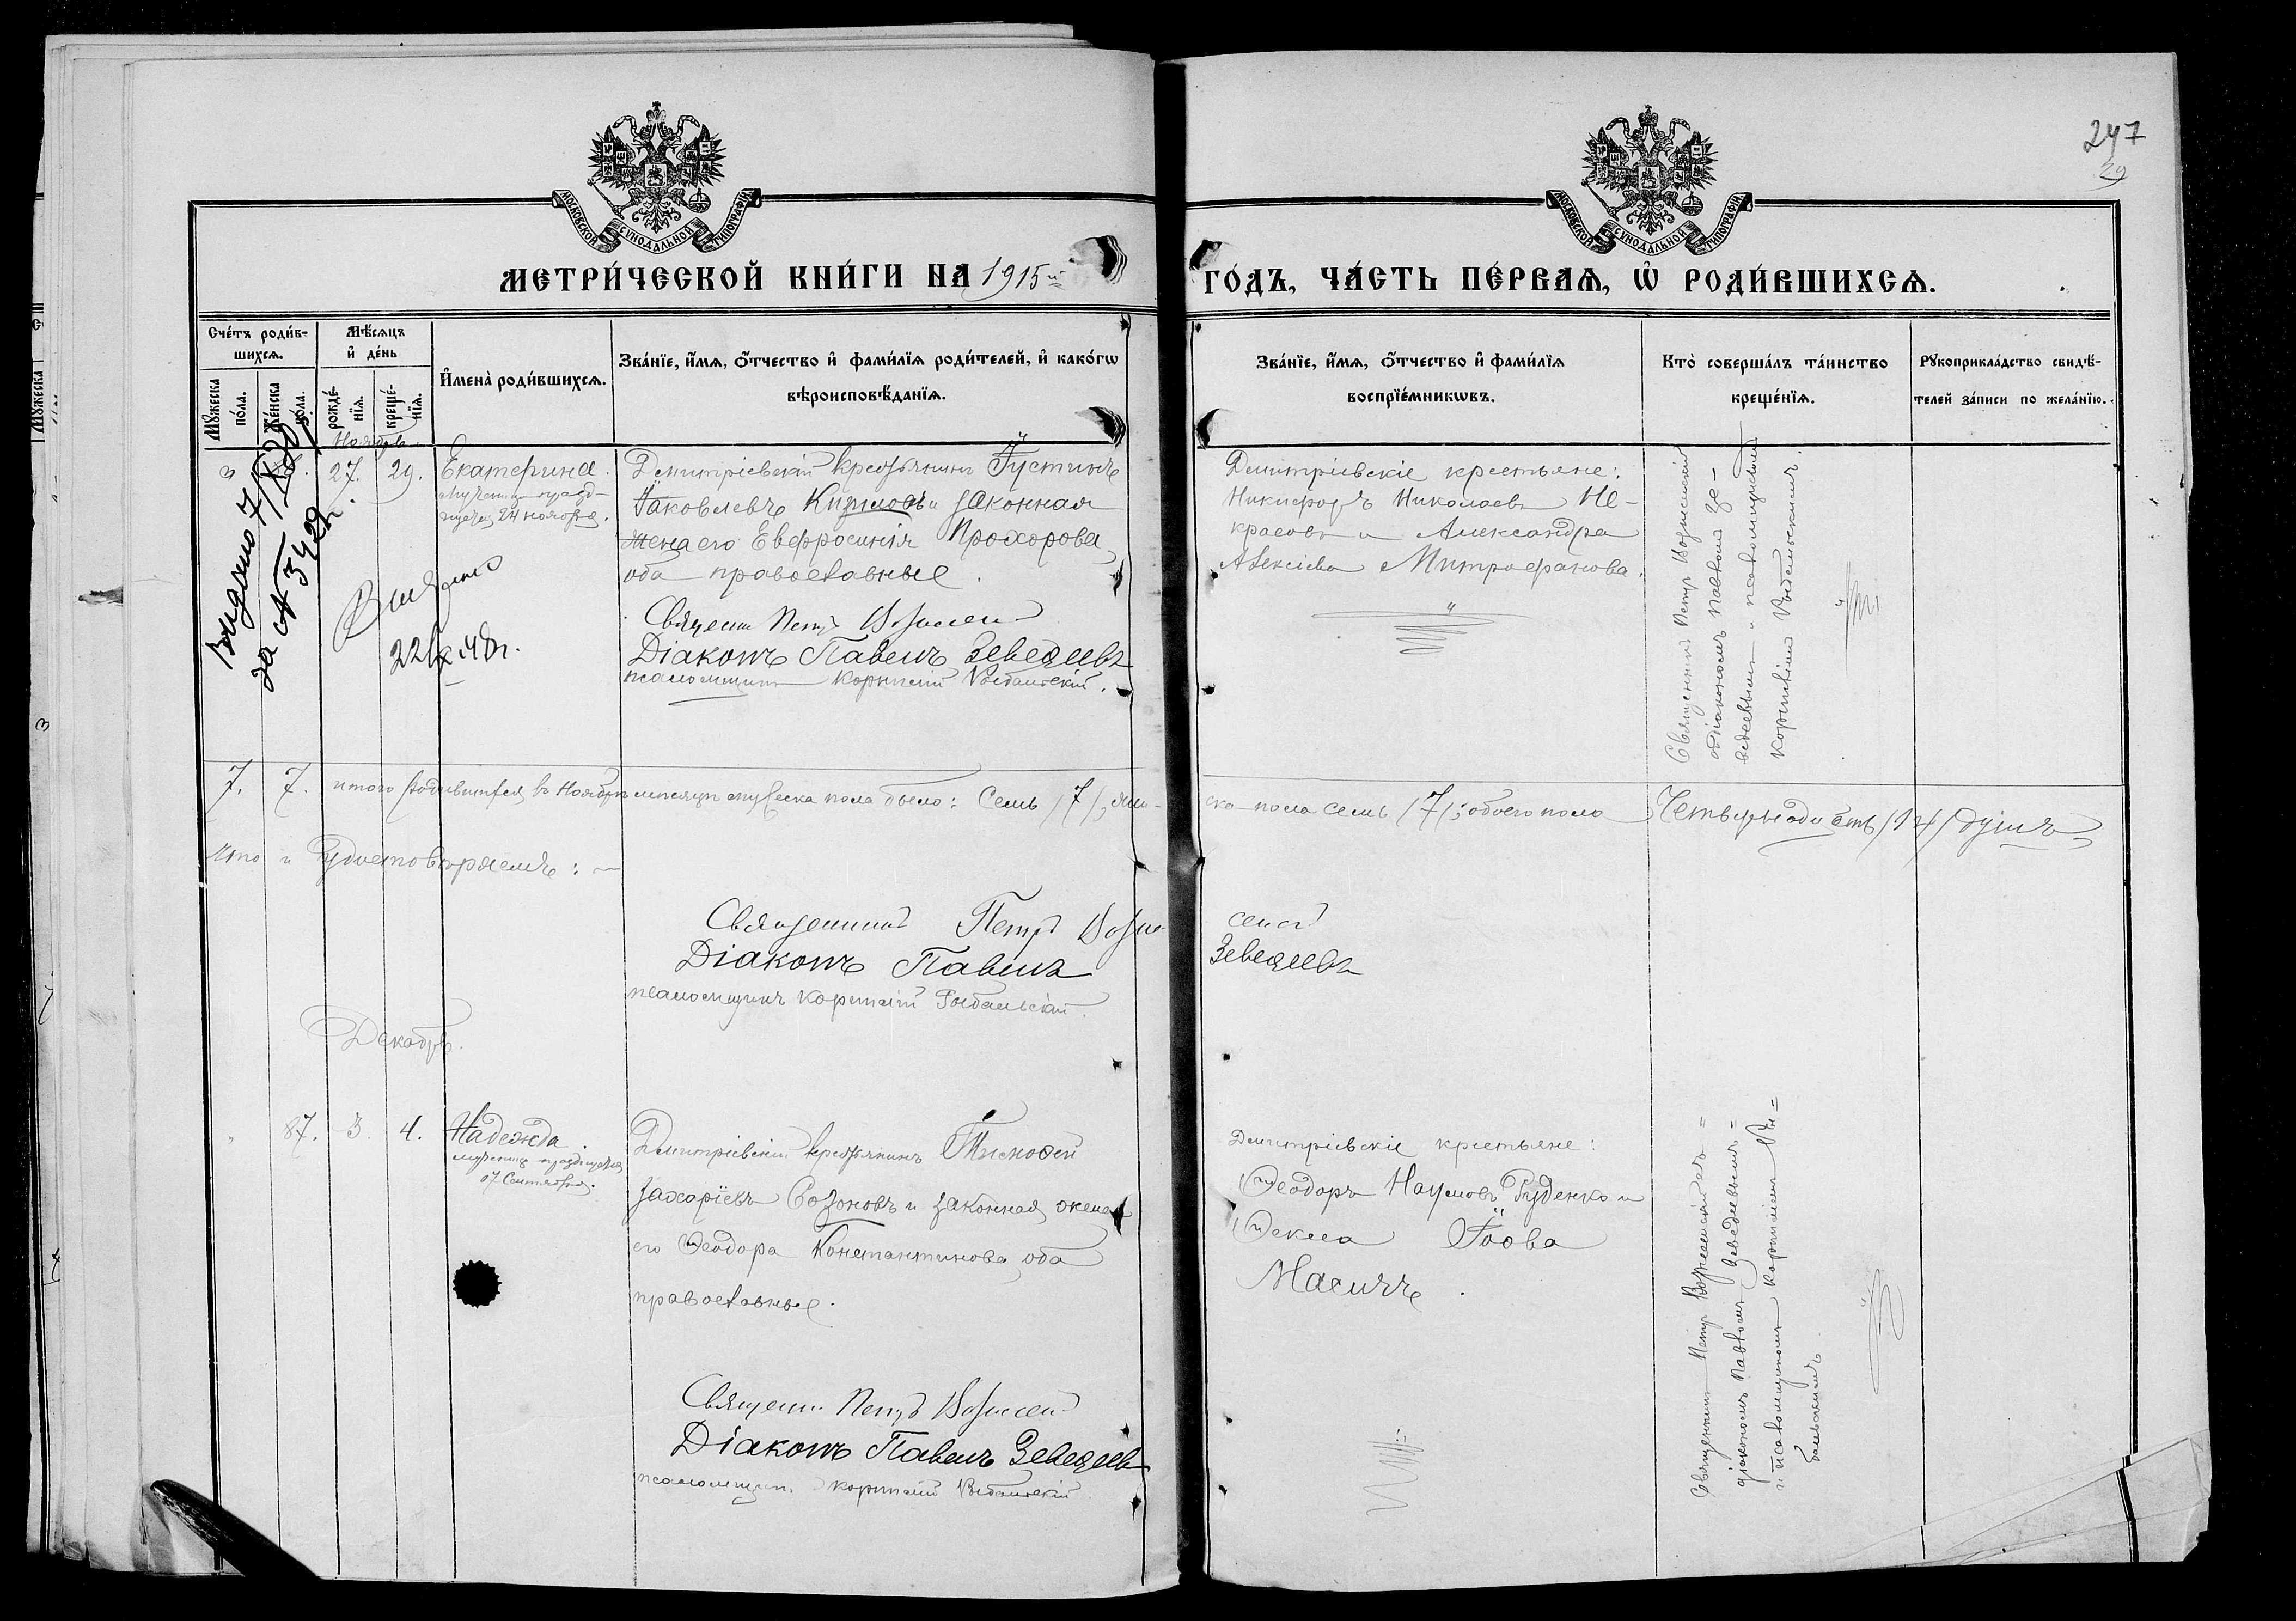 247
29
МОСКОВСКОЙ СѴНОДАЛЬНОЙ ТИПОГРАФІИ
МОСКОВСКОЙ СѴНОДАЛЬНОЙ ТИПОГРАФІИ
МЕТРИ́ЧЕСКОЙ КНИ́ГИ НА 1915й ГО́ДЪ, ЧА́СТЬ ПЕ́РВАѦ, Ѽ РОДИ́ВШИХСѦ.
Сче́тъ роди́в-
шихсѧ.
Мѣ́сѧцъ
и҆ де́нь
Мꙋжеска
по́ла.
Же́нска
по́ла.
рожде́-
нїѧ.
креще́-
нїѧ.
И҆мена̀ роди́вшихсѧ.
Зва́нїе, и҆́мѧ, ѻ҆́тчество и҆ фами́лїѧ роди́телей, и҆ како́гѡ
вѣроисповѣ́данїѧ.
Зва́нїе, и҆́мѧ, ѻ҆́тчество и҆ фами́лїѧ
воспрїе́мникѡвъ.
Кто̀ соверша́лъ та́инство
креще́нїѧ.
Рꙋкоприкла́дство свидѣ́-
телей за́писи по жела́нїю.
Ноябрь.
27. 29. Екатерина.
24 ноября.
Дмитріевскій крестьянинъ Іустинъ
Іаковлевъ Кирилов и законная
жена его Евфросинія Прохорова,
оба православные.
Священн Петръ
Діаконъ Павелъ Зеведеевъ
псаломщикъ Корнилій Рыбальскій.
Выдано
за №
Выдано
22/х 48г.
Дмитріевскіе крестьяне:
Никифоръ Николаевъ Не-
красовъ и Александра
Алексіева Митрофанова.
Священникъ Петр
діакономъ Павломъ Зе-
ведеевымъ и псаломщикомъ
Корниліемъ Рыбальскимъ.
7. 7. итого родившихся въ Ноябрѣ мѣсяцѣ мужеска пола было: Семь /7/, жен-
ска пола семь /7/; обоего пола Четырнадцать /14/ душъ
что и удостовѣряемъ:
Священникъ Петръ
Діаконъ Павелъ Зеведеевъ
псаломщикъ Корнилій Рыбальскій.
Декабрь.
87. 3. 4. Надежда.
мученица празднуется
17 Сентября.
Дмитріевскій крестьянинъ Тимофей
Захаріевъ Созоновъ и законная жена
его Ѳеодора Константинова, оба
православные.
Священн Петръ
Діаконъ Павелъ Зеведеевъ
псаломщик. Корнилій Рыбальскій
Дмитріевскіе крестьяне:
Ѳеодоръ Наумовъ Руденко и
Ѳекла Іова
Масичъ.
Священникъ Петръ
діакономъ Павломъ Зеведеевымъ
и псаломщикомъ Корниліемъ Ры=
бальскимъ.